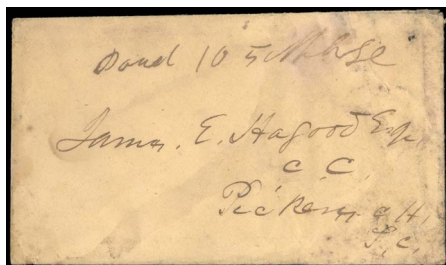 Paid 10
James. E. Hagood Esq
C. C.
Pickens C. H.
S. C.